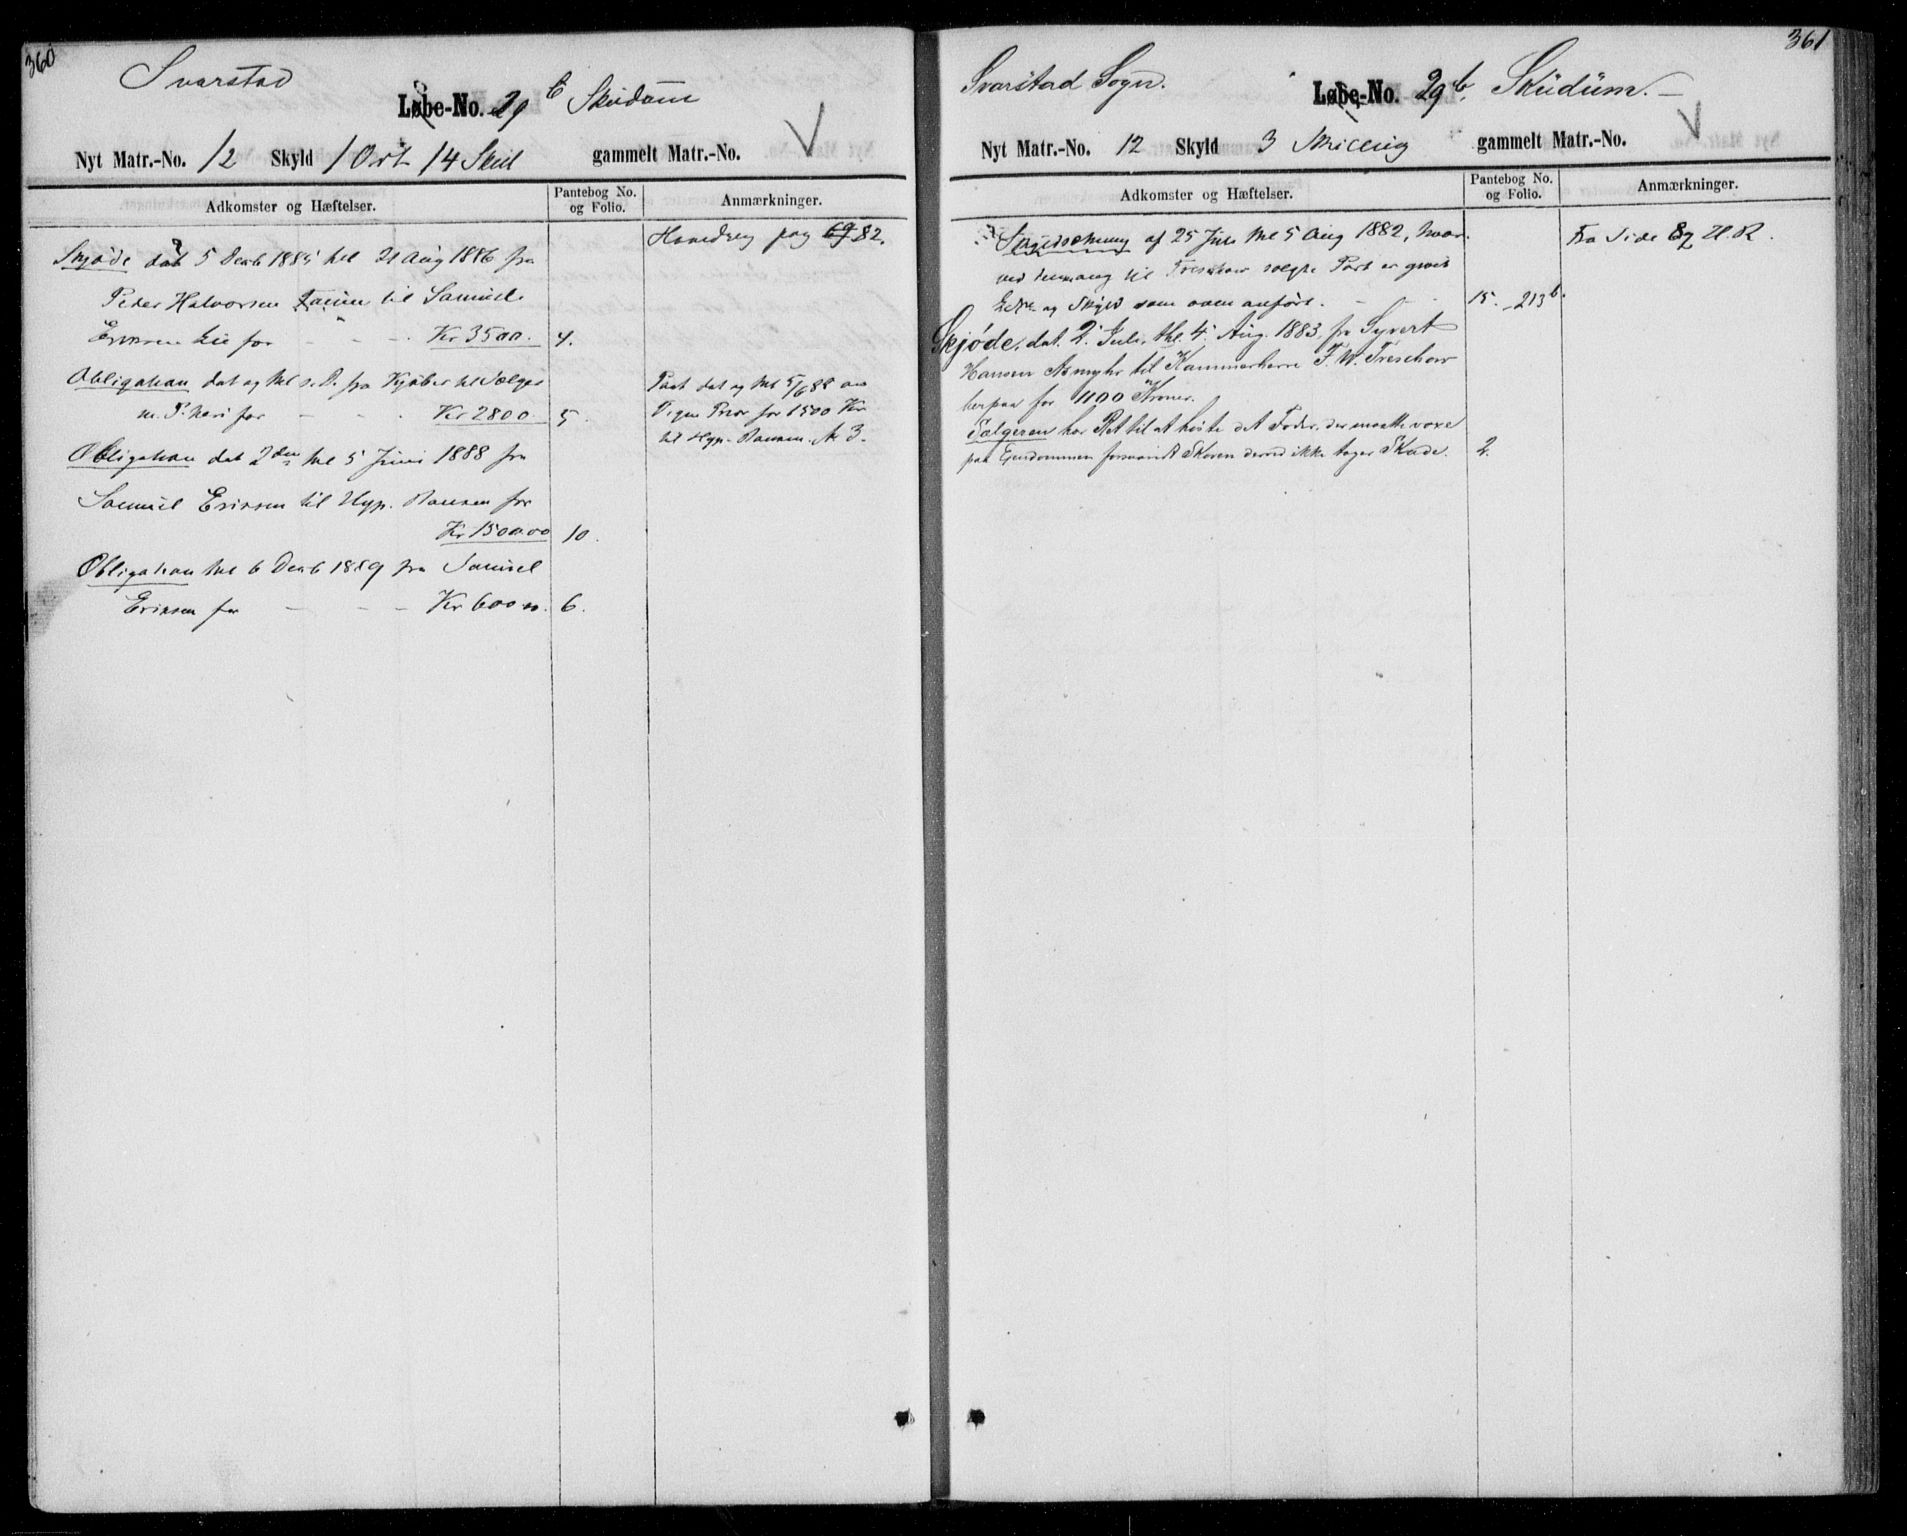 360
Svarstad
Løbe-No. 29 b Skudum
Nyt Matr.-No. 12 Skyld 1 Ort 14 Skil gammelt Matr.-No.
Adkomster og Hæftelser. Pantebog No. og Folio. Anmærkninger.
Hovedreg pag 69 82.
Skjøde dat 5 Decb 1885 thl 21 Aug 1886 fra
Peder Halvorsen til Samuel
Eriksen Lie for - - - Kr 3500. 4.
Obligation dat og thl s. D. fra Kjøber til Sælger
m. P. heri for - - - Kr 2800. 5.
Pant dat og thl 5/6 88 an
Vigen Prior for 1500 Kr
til Hyp. Banken. A 3.
Obligation dat 2den thl 5 Juni 1888 fra
Samuel Eriksen til Hyp. Banken for
Kr 1500.00 10.
Obligation thl 6 Decb 1889 fra Samuel
Eriksen for - - - Kr 600 00. 6.
361
Svarstad Sogn.
Løbe-No. 29 b. Skudum.
Nyt Matr.-No. 12 Skyld 3 Skilling gammelt Matr.-No.
Adkomster og Hæftelser. Pantebog No. og Folio. Anmærkninger.
Skyldsætning af 25 Juli thl 5 Aug 1882, hvor- Fra Side 82 H. R.
ved til Treschow solgte Part er givet
og Skyld som oven anført. - - 15. 213 b.
Skjøde, dat. 2. Juli, thl. 4. Aug. 1883, fra Syvert
Hansen Asmyhr til Kammerherre F. W. Treschow
herpaa for 1100 Kroner.
Sælgeren har Ret til at høste det Foder, der maatte voxe
paa Eiendommen forsaavidt Skoven derved ikke tager Skade. 2.